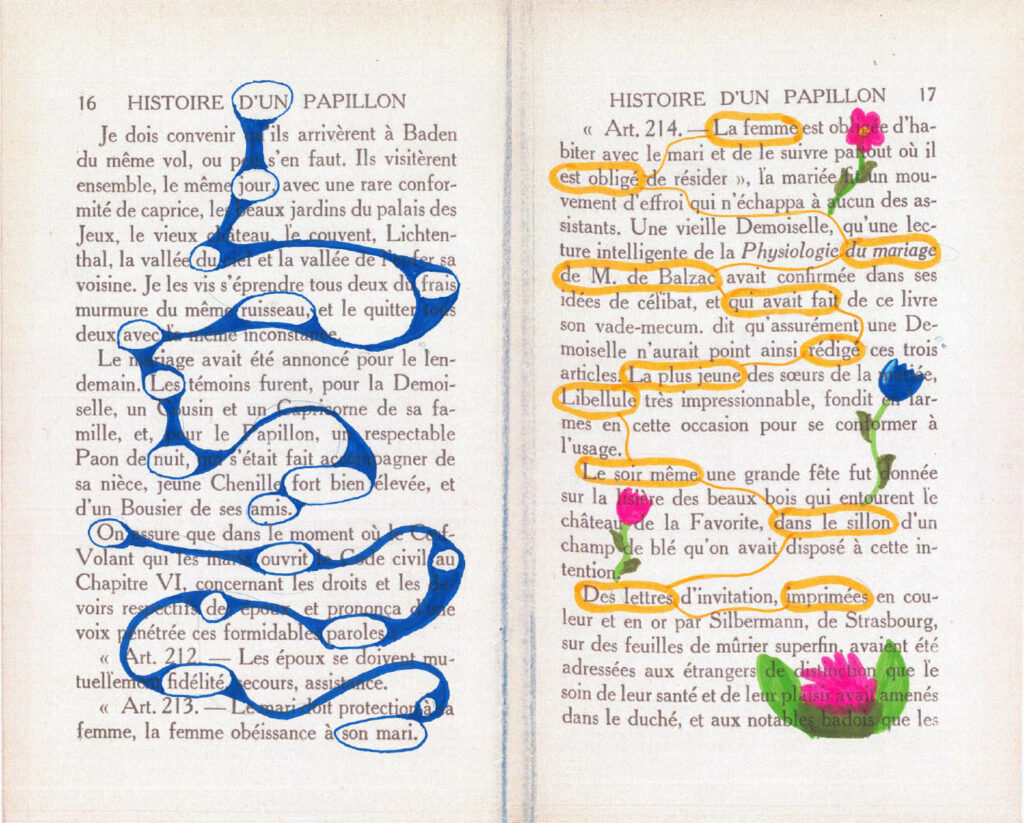 16 HISTOIRE D'UN PAPILLON
Je dois convenir qu'ils arrivèrent à Baden
du même vol, ou peu s'en faut. Ils visitèrent
ensemble, le même jour, avec une rare confor-
mité de caprice, les beaux jardins du palais des
Jeux, le vieux château, le couvent, Lichten-
thal, la vallée du ciel et la vallée de l'enfer sa
voisine. Je les vis s'éprendre tous deux du frais
murmure du même ruisseau, et le quitter tous
deux avec la même inconstance.
Le mariage avait été annoncé pour le len-
demain. Les témoins furent, pour la Demoi-
selle, un Cousin et un Capricorne de sa fa-
mille, et, pour le Papillon, un respectable
Paon de nuit, qui s'était fait accompagner de
sa nièce, jeune Chenille fort bien élevée, et
d'un Bousier de ses amis.
On assure que dans le moment où le Cerf-
Volant qui les maria ouvrit le Code civil au
Chapitre VI, concernant les droits et les de-
voirs respectifs des époux, et prononça d'une
voix pénétrée ces formidables paroles :
« Art. 212. — Les époux se doivent mu-
tuellement fidélité, secours, assistance.
« Art. 213. — Le mari doit protection à sa
femme, la femme obéissance à son mari.
HISTOIRE D'UN PAPILLON 17
« Art. 214. — La femme est obligée d'ha-
biter avec le mari et de le suivre partout où il
est obligé de résider », la mariée fit un mou-
vement d'effroi qui n'échappa à aucun des as-
sistants. Une vieille Demoiselle, qu'une lec-
ture intelligente de la Physiologie du mariage
de M. de Balzac avait confirmée dans ses
idées de célibat, et qui avait fait de ce livre
son vade-mecum. dit qu'assurément une De-
moiselle n'aurait point ainsi rédigé ces trois
articles. La plus jeune des sœurs de la mariée,
Libellule très impressionnable, fondit en lar-
mes en cette occasion pour se conformer à
l'usage.
Le soir même une grande fête fut donnée
sur la lisière des beaux bois qui entourent le
château de la Favorite, dans le sillon d'un
champ de blé qu'on avait disposé à cette in-
tention.
Des lettres d'invitation, imprimées en cou-
leur et en or par Silbermann, de Strasbourg,
sur des feuilles de mûrier superfin, avaient été
adressées aux étrangers de distinction que le
soin de leur santé et de leur plaisir avait amenés
dans le duché, et aux notables badois que les